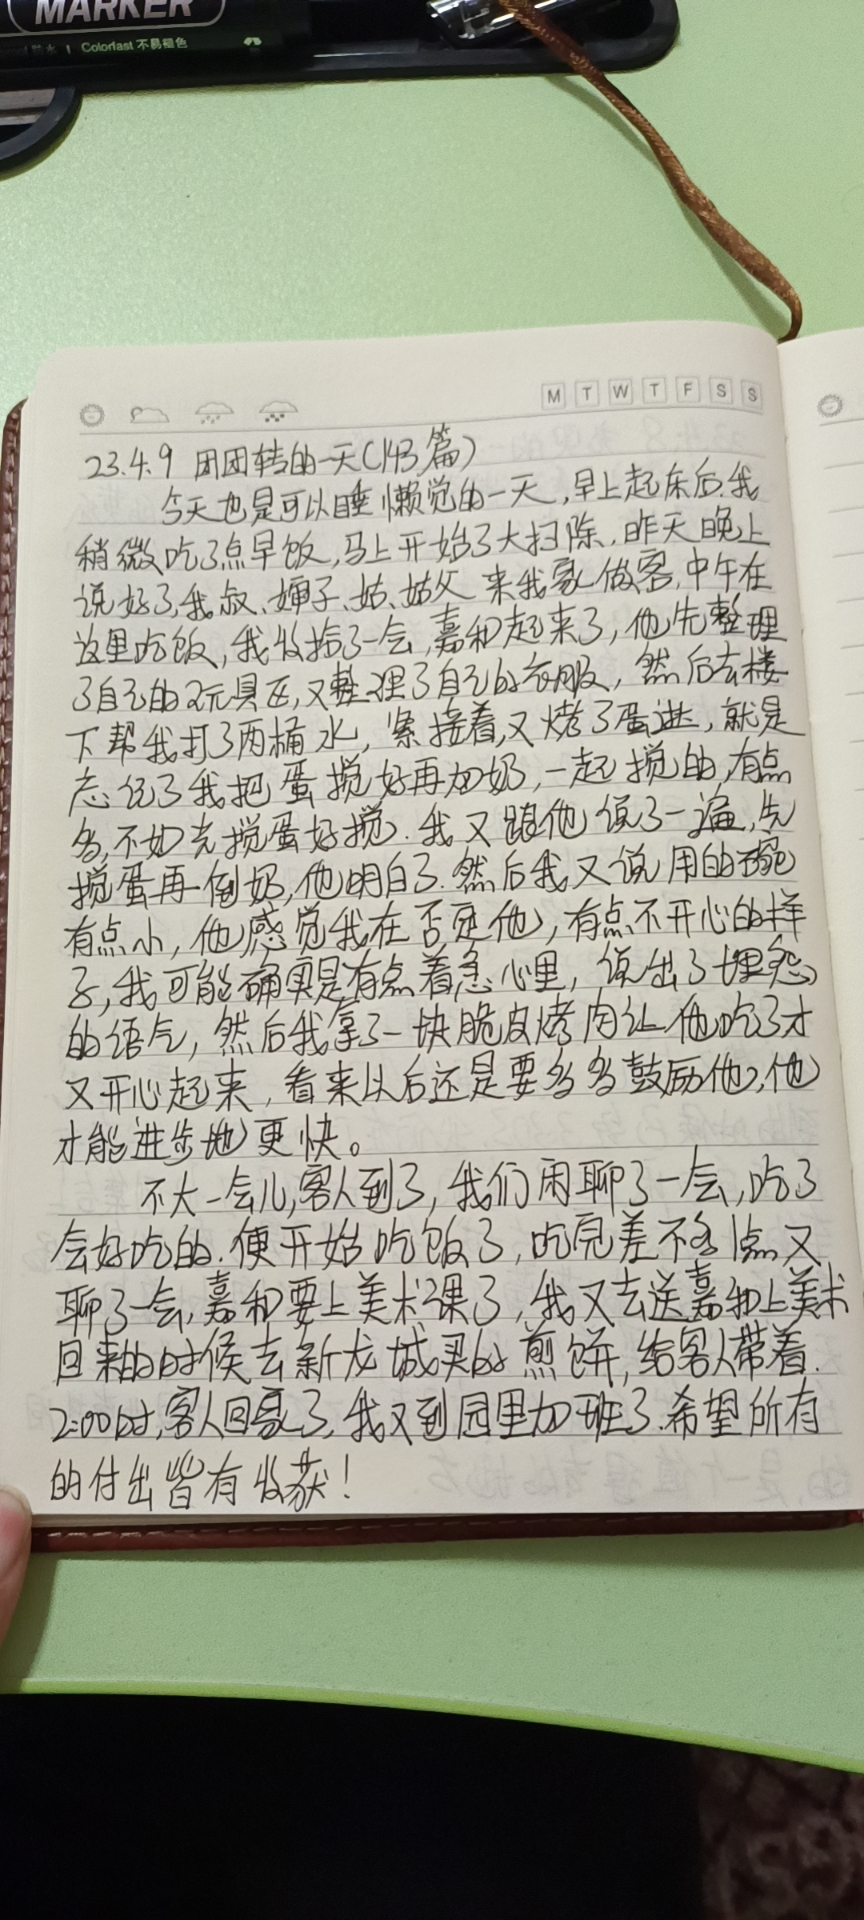 MARKER
防水 | Colorfast 不易褪色
M T W T F S S
23.4.9 团团转的一天(143篇)
今天也是可以睡懒觉的一天,早上起床后.我
稍微吃了点早饭,马上开始了大扫除,昨天晚上
说好了,我叔、婶子、姑、姑父来我家做客,中午在
这里吃饭,我收拾了一会,嘉和起来了,他先整理
了自己的玩具区,又整理了自己的衣服,然后去楼
下帮我打了两桶水,紧接着,又烤了蛋挞,就是
忘记了我把蛋搅好再加奶,一起搅的,有点
多,不如先搅蛋好搅.我又跟他说了一遍,先
搅蛋再倒奶,他明白了.然后我又说用的碗
有点小,他感觉我在否定他,有点不开心的样
子,我可能确实是有点着急心里,说出了埋怨
的语气,然后我拿了一块脆皮烤肉让他吃了才
又开心起来,看来以后还是要多多鼓励他,他
才能进步地更快。
不大一会儿,客人到了,我们闲聊了一会,吃了
会好吃的.便开始吃饭了,吃完差不多1点又
聊了一会,嘉和要上美术课了,我又去送嘉和上美术
回来的时候去新龙城买的煎饼,给客人带着.
2:00时,客人回家了,我又到园里加班了.希望所有
的付出皆有收获!